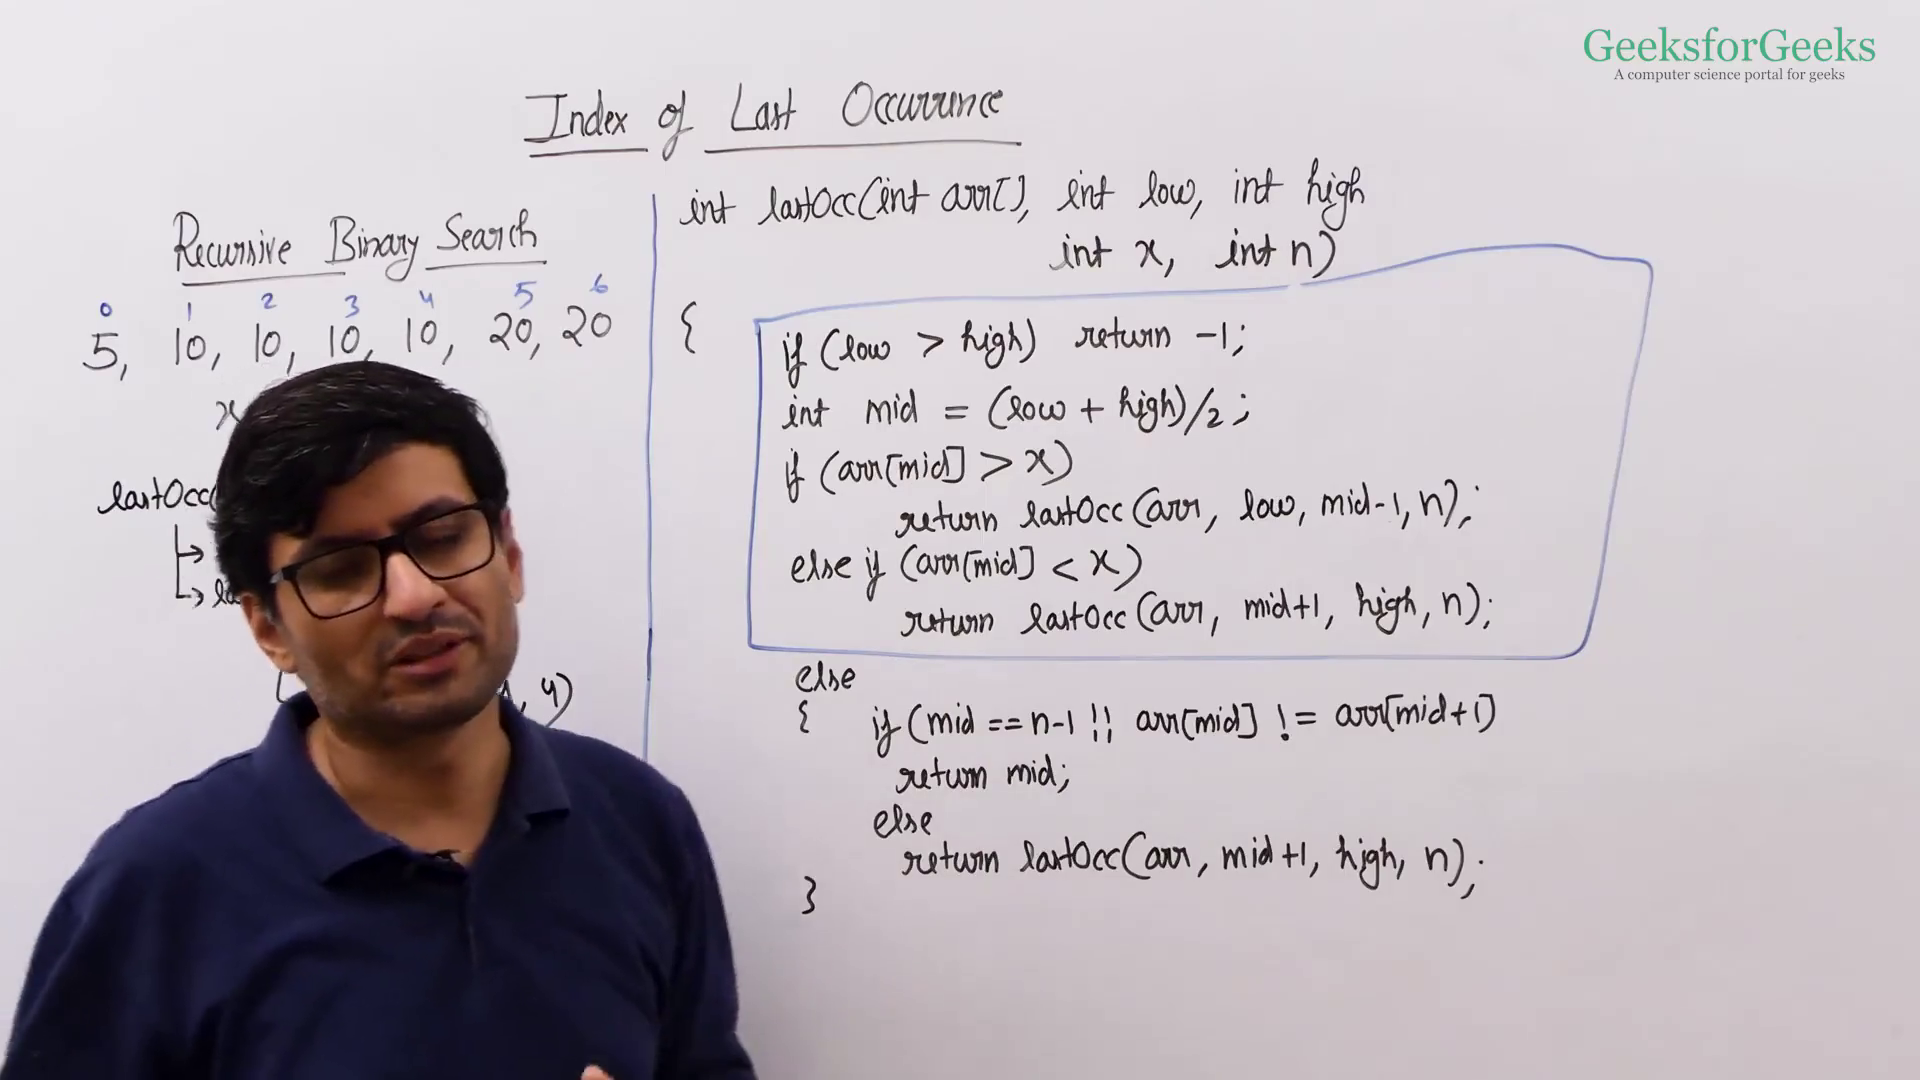 GeeksforGeeks
A computer science portal for geeks
Index of Last Occurrence
Recursive Binary Search
0 1 2 3 4 5 6
5, 10, 10, 10, 10, 20, 20
x
lastOcc(
, 4)
int lastOcc(int arr[], int low, int high
int x, int n)
{
if (low > high) return -1;
int mid = (low + high)/2;
if (arr[mid] > x)
return lastOcc(arr, low, mid-1, n);
else if (arr[mid] < x)
return lastOcc(arr, mid+1, high, n);
else
{ if (mid == n-1 || arr[mid] != arr[mid+1]
return mid;
else
return lastOcc(arr, mid+1, high, n);
}